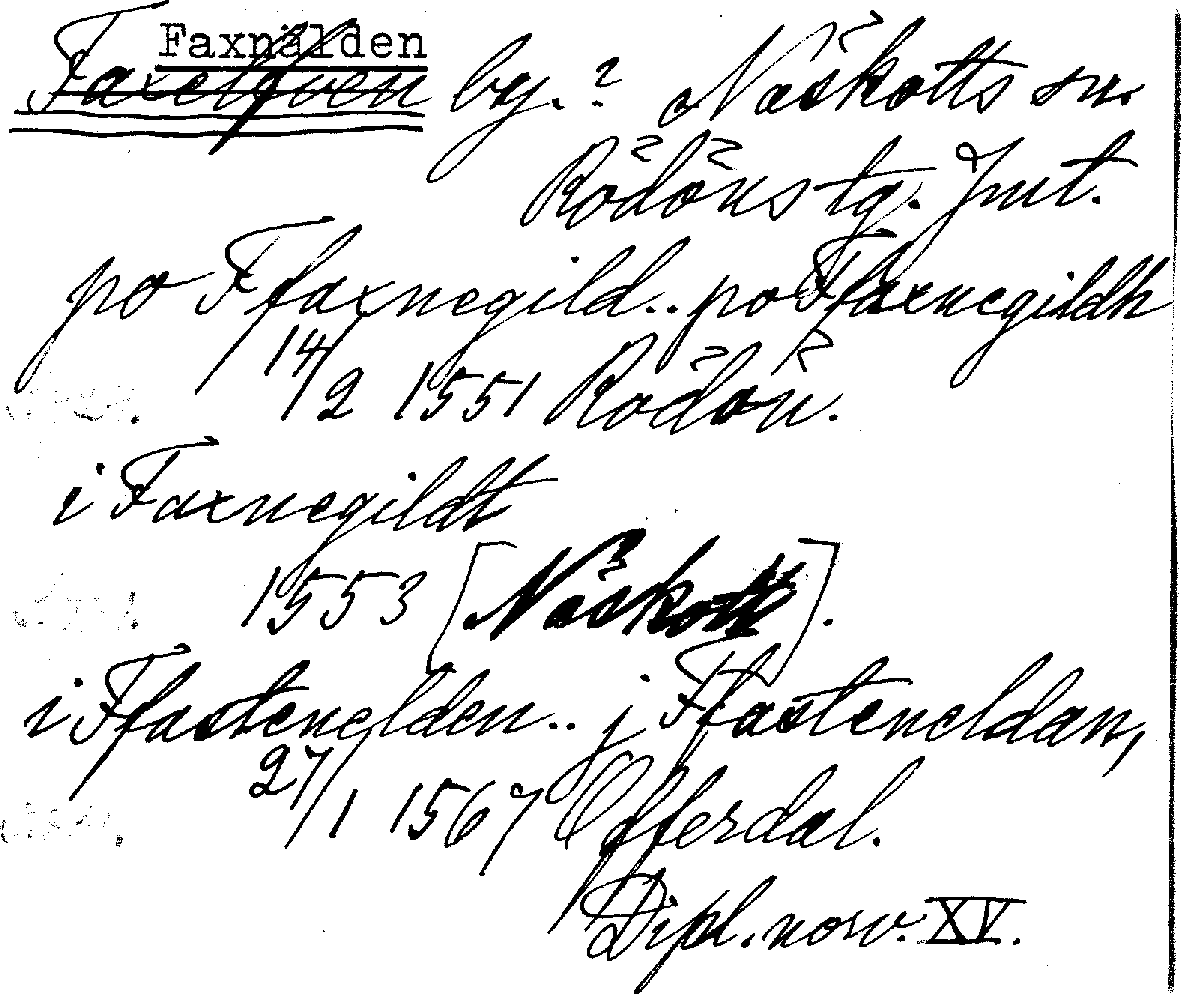 Faxnälden
Faxelfven by.? Näskotts sn.
Rödöns tg. Jmt.
po Ffaxnegild.. po Ffaxnegildh
14/2 1551 Rödön.
i Faxnegildt
1553 [Näskott].
i Ffastenelden.. j Ffasteneldan,
27/1 1567 Offerdal.
Dipl. norv. XV.